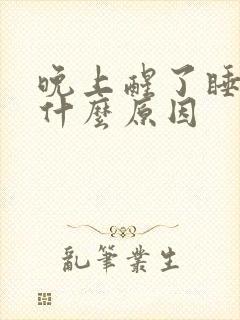 晚上醒了睡
什麼原因
亂筆業生